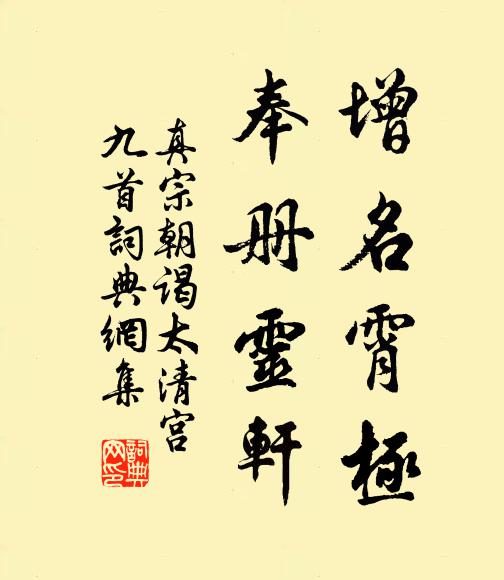 增名霄極
奉册靈軒
真宗朝謁太清宫
九首詞典網集
詞典網印